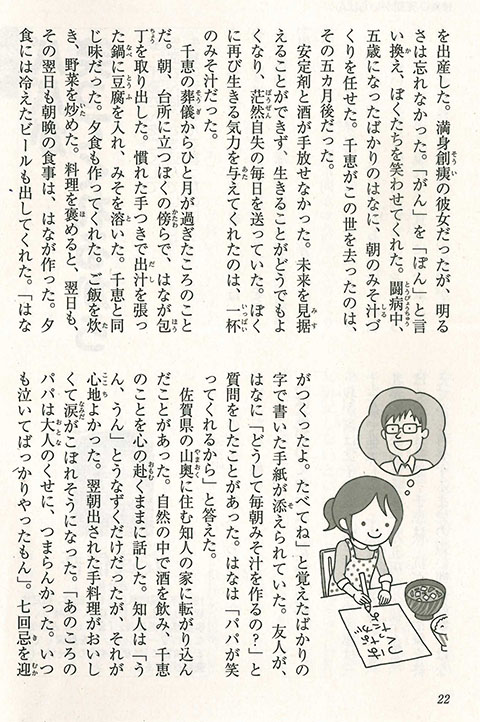 を出産した。満身創痍の彼女だったが、明る
さは忘れなかった。「がん」を「ぽん」と言
い換え、ぼくたちを笑わせてくれた。闘病中、
五歳になったばかりのはなに、朝のみそ汁づ
くりを任せた。千恵がこの世を去ったのは、
その五カ月後だった。
安定剤と酒が手放せなかった。未来を見据
えることができず、生きることがどうでもよ
くなり、茫然自失の毎日を送っていた。ぼく
に再び生きる気力を与えてくれたのは、一杯
のみそ汁だった。
千恵の葬儀からひと月が過ぎたころのこと
だ。朝、台所に立つぼくの傍らで、はなが包
丁を取り出した。慣れた手つきで出汁を張っ
た鍋に豆腐を入れ、みそを溶いた。千恵と同
じ味だった。夕食も作ってくれた。ご飯を炊
き、野菜を炒めた。料理を褒めると、翌日も、
その翌日も朝晩の食事は、はなが作った。夕
食には冷えたビールも出してくれた。「はな
がつくったよ。たべてね」と覚えたばかりの
字で書いた手紙が添えられていた。友人が、
はなに「どうして毎朝みそ汁を作るの？」と
質問をしたことがあった。はなは「パパが笑
ってくれるから」と答えた。
佐賀県の山奥に住む知人の家に転がり込ん
だことがあった。自然の中で酒を飲み、千恵
のことを心の赴くままに話した。知人は「う
ん、うん」とうなずくだけだったが、それが
心地よかった。翌朝出された手料理がおいし
くて涙がこぼれそうになった。「あのころの
パパは大人のくせに、つまらんかった。いつ
も泣いてばっかりやったもん」。七回忌を迎
22